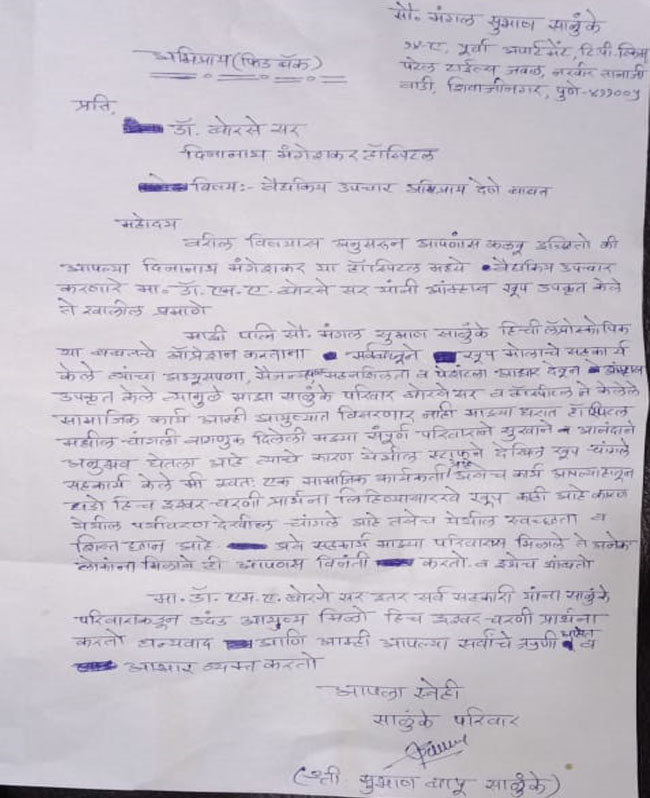 सौ. मंगल सुभाष साळुंके
७४-ए, पूर्वा अपार्टमेंट, टि.पी.
पटेल टाईल्स जवळ, नरवीर तानाजी
वाडी, शिवाजीनगर, पुणे-४११००५
अभिप्राय (फिड बॅक)
प्रति,
डॉ. बोरसे सर
दिनानाथ मंगेशकर हॉस्पिटल
विषय:- वैद्यकिय उपचार अभिप्राय देणे बाबत
महोदय
वरील विषयास अनुसरुन आपणांस कळवू इच्छितो की
आपल्या दिनानाथ मंगेशकर या हॉस्पिटल मध्ये वैद्यकिय उपचार
करणारे मा. डॉ. एम. ए. बोरसे सर यांनी आम्हास खूप उपकृत केले
ते खालील प्रमाणे
माझी पत्नि सौ. मंगल सुभाष साळुंके हिची लॅप्रोस्कोपिक
या बाबतचे ऑप्रेशन करताना सर्वबाजूने खूप मोलाचे सहकार्य
केले त्यांचा अभ्यूसपणा, सौजन्य सहनशिलता व पेशंटला आधार देवून
उपकृत केले त्यामुळे माझा साळुंके परिवार बोरसे सर व हॉस्पीटल ने केलेले
सामाजिक कार्य आम्ही आयुष्यात विसरणार नाही माझ्या घरात हॉस्पिटल
मधील चांगली वागणुक दिलेली मझ्या संपूर्ण परिवाराने सुखाने व आनंदाने
अनुभव घेतला आहे त्याचे कारण येथील स्टाफने देखिल खूप चांगले
सहकार्य केले मी स्वतः एक सामाजिक कार्यकर्ता आहे असेच कार्य आपल्याहातून
घडो हिच इश्वर चरणी प्रार्थना लिहिण्यासारखे खूप काही आहे कारण
येथील पर्यावरण देखील चांगले आहे तसेच येथील स्वच्छता व
शिस्त छान आहे. असे सहकार्य माझ्या परिवारास मिळाले ते अनेक
लोकांना मिळावे ही आपणास विनंती करतो व इथेच थांबतो
मा. डॉ. एम. ए. बोरसे सर इतर सर्व सहकारी यांना साळुंके
परिवाराकडून उदंड आयुष्य मिळो हिच इश्वर चरणी प्रार्थना
करतो धन्यवाद आणि आम्ही आपल्या सर्वांचे ऋणी आहोत व
आभार व्यक्त करतो
आपला स्नेही
साळुंके परिवार
(श्री सुभाष बापू साळुंके)